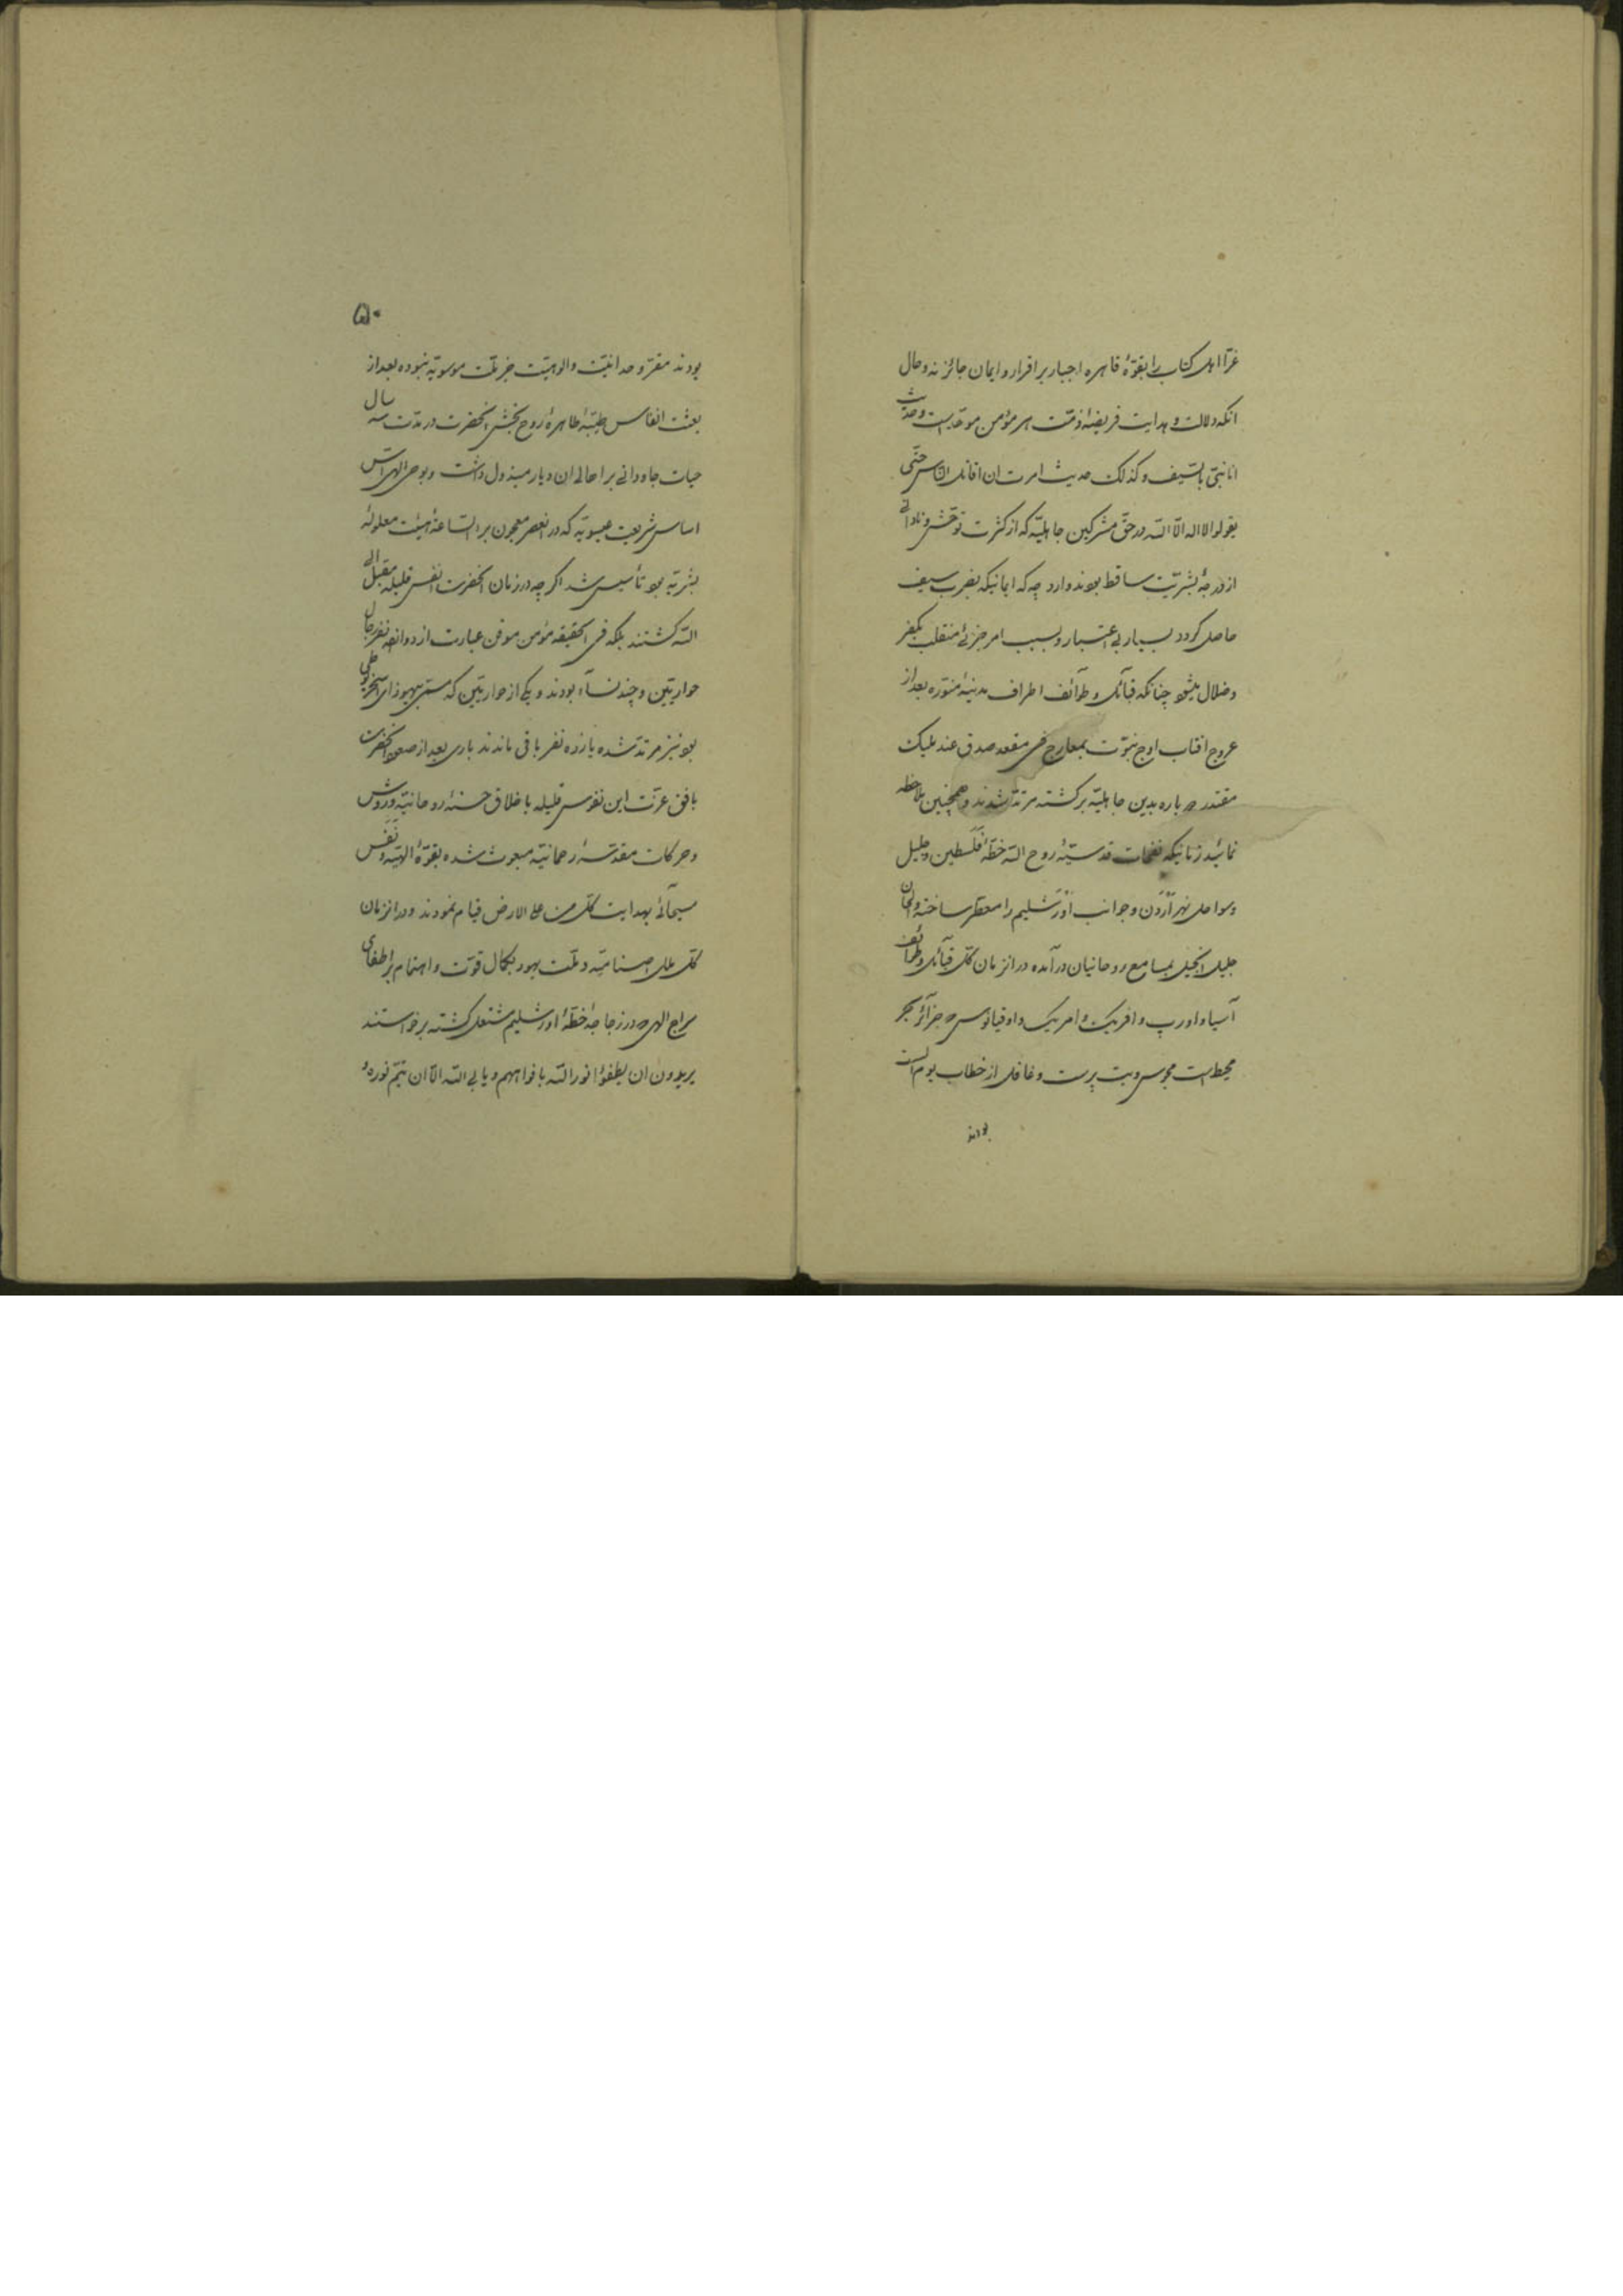 غرّا اهل کتاب را بقوّهٔ قاهره اجبار بر اقرار و ایمان جائز نه و حال
انکه دلالت و هدایت فریضهٔ ذمّت هر مؤمن موحّد است و حدیث
انا نبیّ بالسّیف و کذلک حدیث امرت ان اقاتل النّاس حتّی
یقولوا لا اله الّا اللّه در حقّ مشرکین جاهلیّه که از کثرت توحّش و نادانی
از درجهٔ بشریّت ساقط بودند وارد چه که ایمانیکه بضرب سیف
حاصل کردد بسیار بی اعتبار و بسبب امر جزئی منقلب بکفر
و ضلال میشود چنانکه قبآئل و طوآئف اطراف مدینهٔ منوّره بعد از
عروج افتاب اوج نبوّت بمعارج فی مقعد صدق عند ملیک
مقتدر دوباره بدین جاهلیّه برکشته مرتدّ شدند و همچنین ملاحظه
نمائید زمانیکه نفحات قدسیّهٔ روح اللّه خطّهٔ فلسطین و جلیل
و سواحل نهر آردن و جوانب اورشلیم را معطّر ساخته و الحان
جلیل انجیل بمسامع روحانیان درآمده در انزمان کلّ قبآئل و طوآئف
آسیا و اورپ و افریک و امریک و اوقیانوس که جزآئر بحر
محیط است مجوس و بت پرست و غافل از خطاب یوم الست
بودند
۵۰
بودند مقرّ وحدانیّت و الوهیّت جز ملّت موسویّه نبوده بعد از
بعثت انفاس طیّبهٔ طاهرهٔ روح بخش انحضرت در مدّت سه سال
حیات جاودانی بر اهالی ان دیار مبذول داشت و بوحی الهی اسّ
اساس شریعت عیسویّه که در انعصر معجون برء السّاعهٔ هیئت معلولهٔ
بشریّه بود تأسیس شد اکر چه در زمان انحضرت انفس قلیله مقبل الی
اللّه کشتند بلکه فی الحقیقه مؤمن موقن عبارت از دوانزده نفر رجال
حواریّین و چند نسآء بودند و یکی از حواریّین که مسمّی بیهوذای اسخریوطی
بود نیز مرتدّ شده یازده نفر باقی ماندند باری بعد از صعود انحضرت
بافق عزّت این نفوس قلیله باخلاق حسنهٔ روحانیّه و روش
و حرکات مقدّسهٔ رحمانیّه مبعوث شده بقوّهٔ الهیّه و نفس
مسیحآئی بهدایت کلّ من علی الارض قیام نمودند و در انزمان
کلّ ملل اصنامیّه و ملّت یهود بکمال قوّت و اهتمام بر اطفای
سراج الهی که در زجاجهٔ خطّهٔ اورشلیم مشتعل کشته برخواستند
یریدون ان یطفؤا نور اللّه بافواههم و یابی اللّه الّا ان یتمّ نوره و